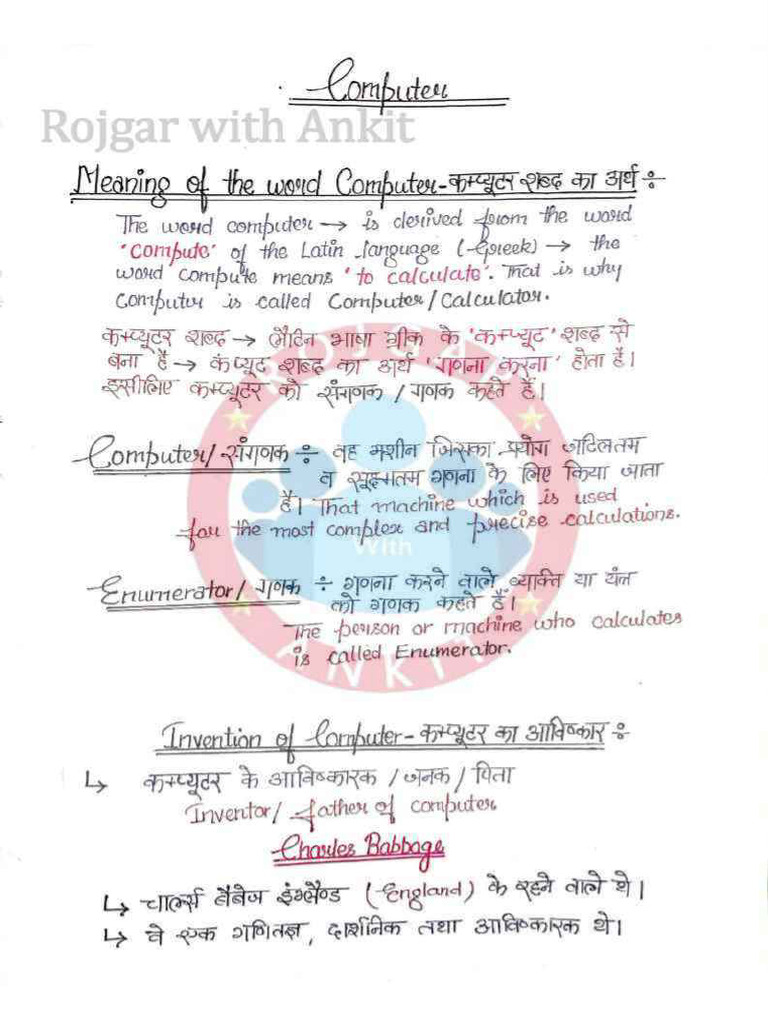 Computer
Rojgar with Ankit
Meaning of the word Computer - कम्प्यूटर शब्द का अर्थ ÷
The word computer → is derived from the word
'Compute' of the Latin language (Greek) → the
word compute means 'to calculate'. That is why
Computer is called Computer/Calculator.
कम्प्यूटर शब्द → लैटिन भाषा ग्रीक के 'कम्प्यूट' शब्द से
बना है → कंप्यूट शब्द का अर्थ 'गणना करना' होता है।
इसीलिए कम्प्यूटर को संगणक / गणक कहते हैं।
Computer/संगणक ÷ वह मशीन जिसका प्रयोग जटिलतम
व सूक्ष्मतम गणना के लिए किया जाता
है। That machine which is used
for the most complex and precise calculations.
Enumerator/गणक ÷ गणना करने वाले व्यक्ति या यंत्र
को गणक कहते हैं।
The person or machine who calculates
is called Enumerator.
ROJGAR
With
ANKIT
Invention of Computer - कम्प्यूटर का आविष्कार ÷
↳ कम्प्यूटर के आविष्कारक / जनक / पिता
Inventor/ father of computer
Charles Babbage
↳ चार्ल्स बैबेज इंग्लैण्ड (England) के रहने वाले थे।
↳ वे एक गणितज्ञ, दार्शनिक तथा आविष्कारक थे।